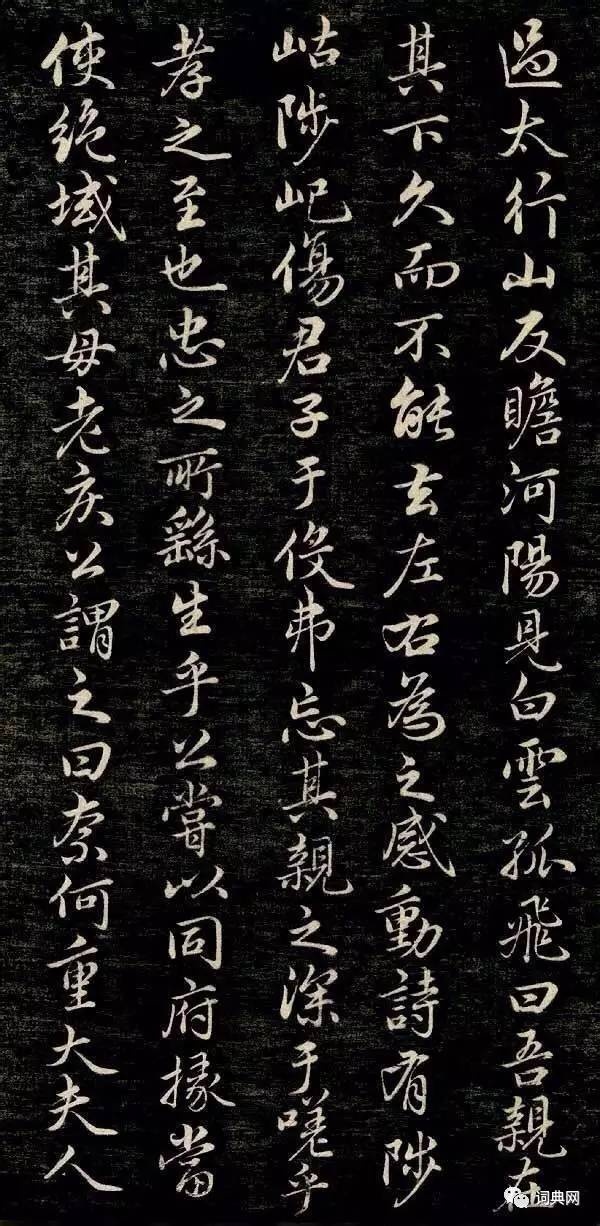 過太行山反瞻河陽見白雲孤飛曰吾親在
其下久而不能去左右為之感動詩有陟
岵陟屺傷君子于役弗忘其親之深于嗟乎
孝之至也忠之所繇生乎公嘗以同府掾當
使絶域其母老疾公謂之曰奈何重大夫人
词典网